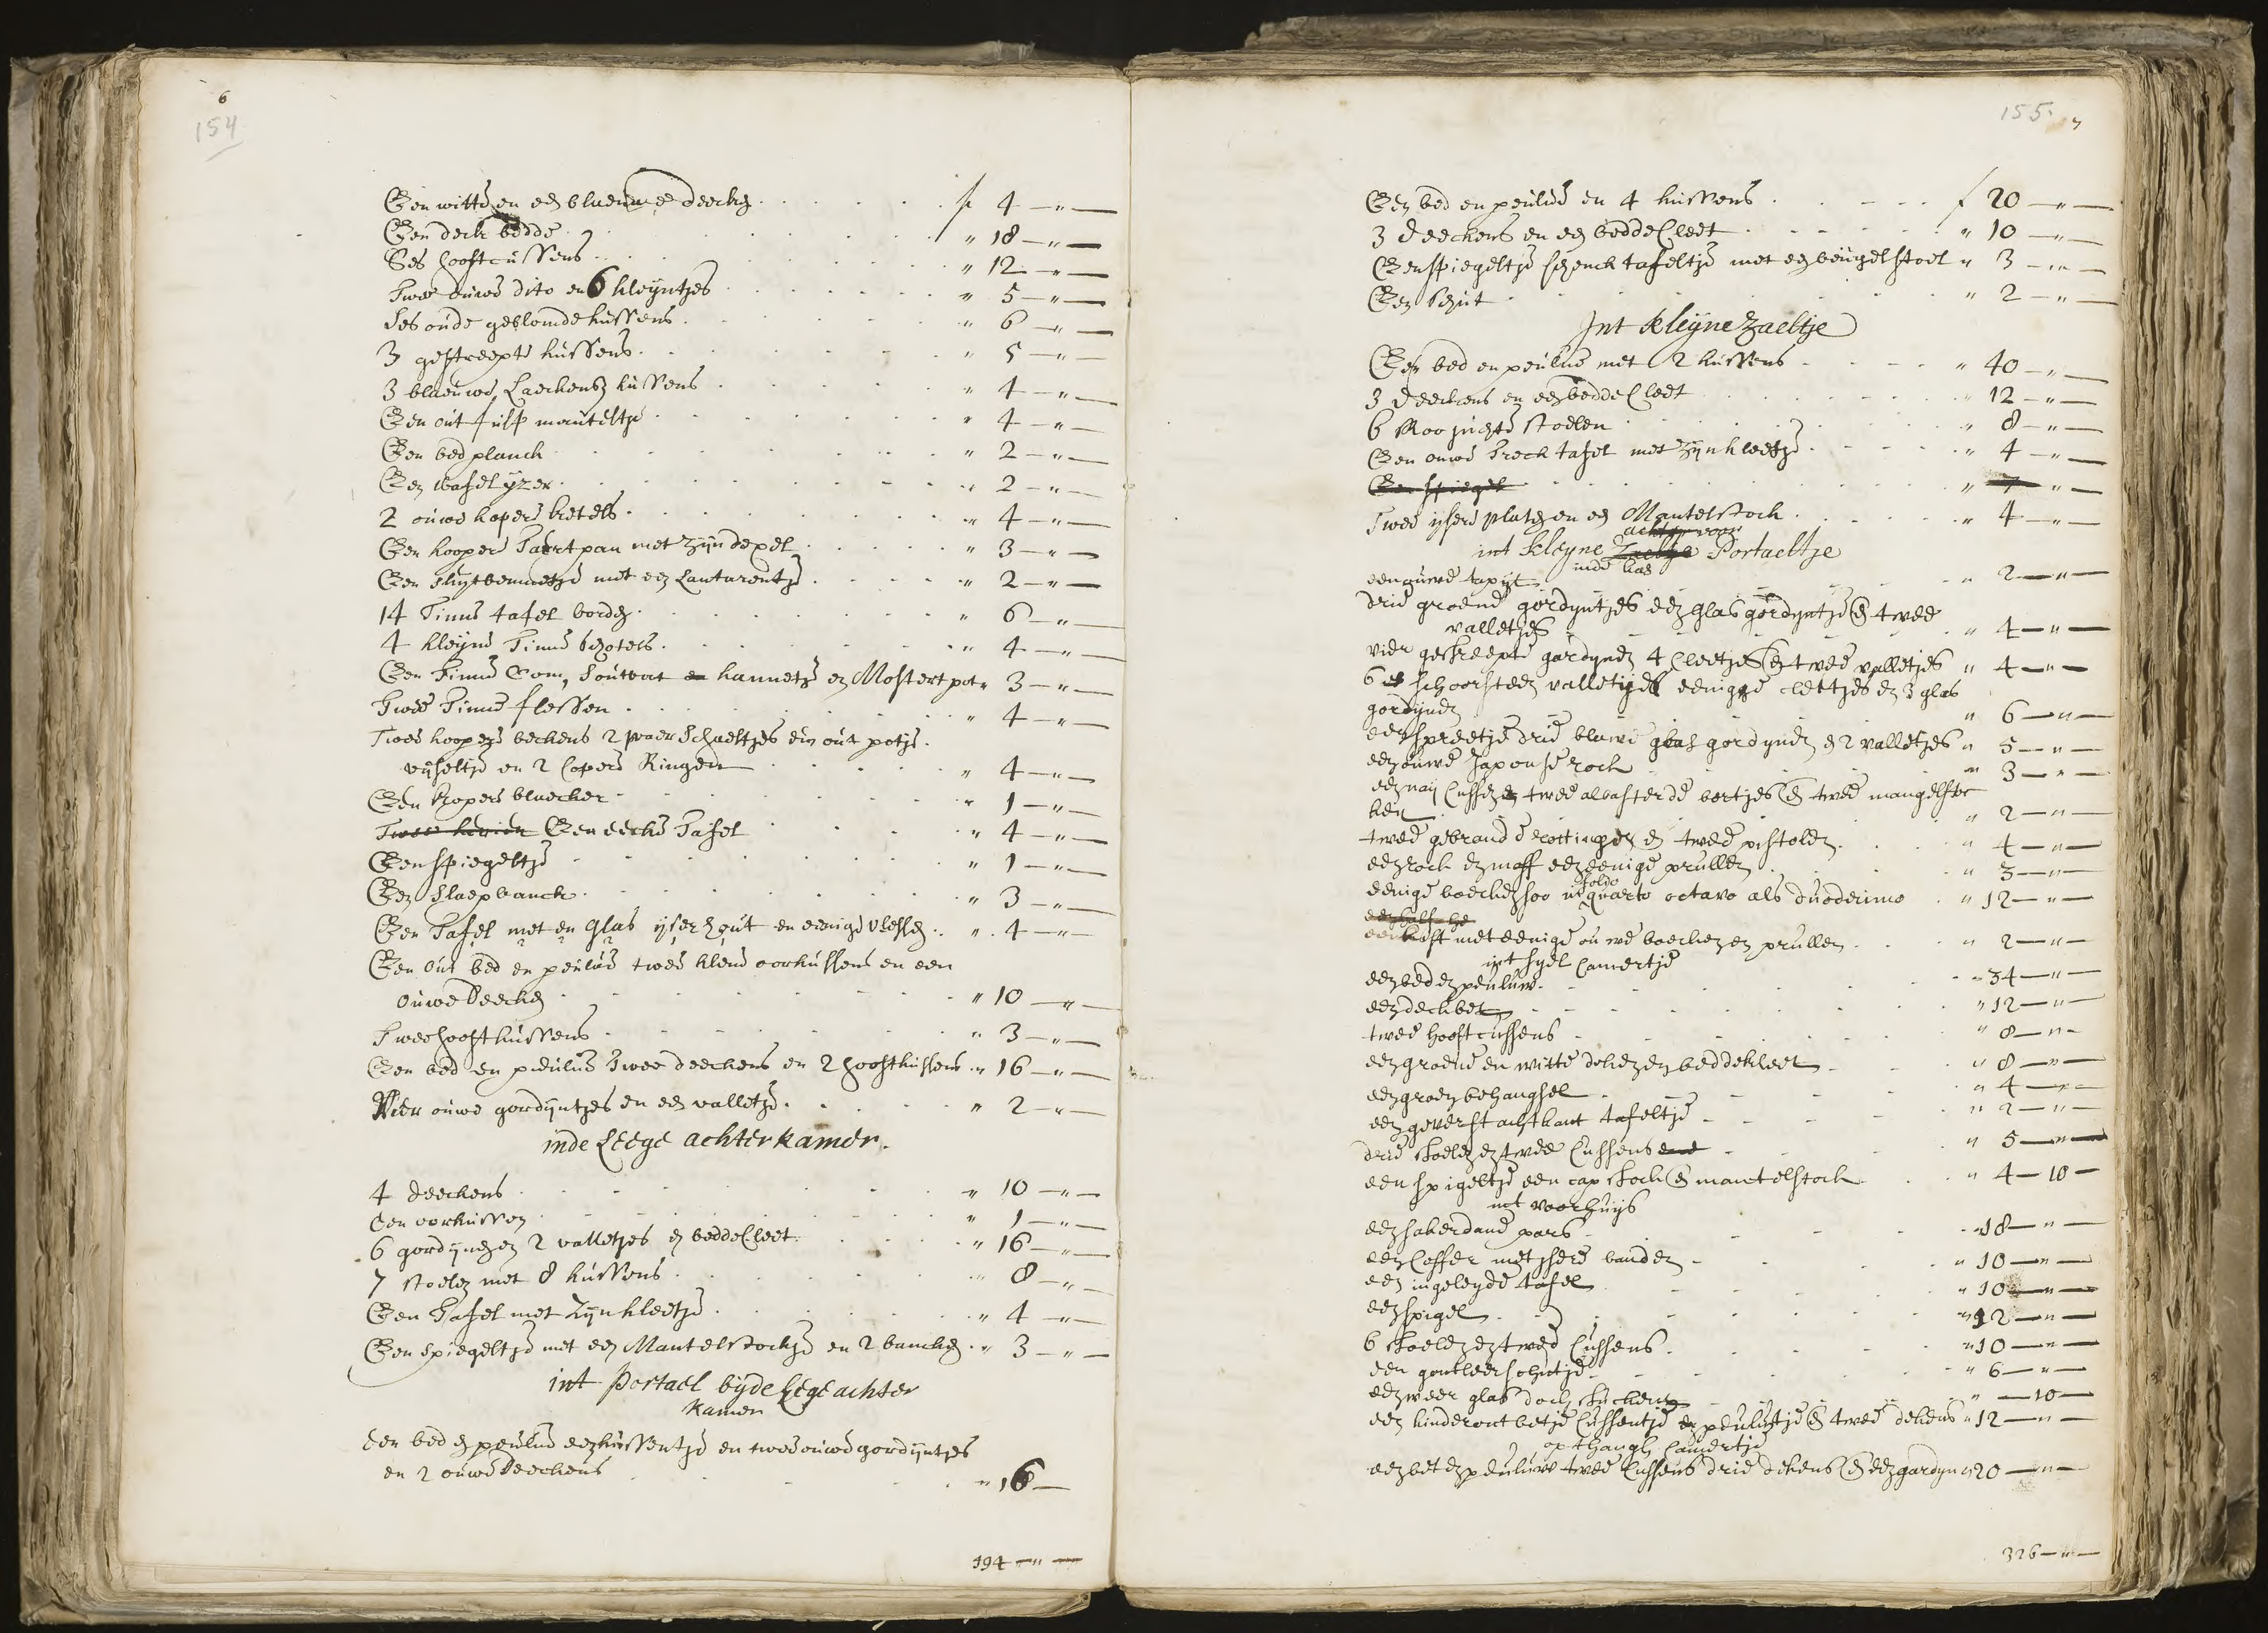 6
154
Een witte en een blaeuwe deecken f 4 — " —
Een deck bedde " 18 — " —
Ses hooftcussens " 12 — " —
Twee ouwe dito en 6 kleyntjes " 5 — " —
Ses oude geblomde kussens " 6 — " —
3 gestreepte kussens " 5 — " —
3 blaeuwe Laeckense kussens " 4 — " —
Een out fulp manteltje " 4 — " —
Een bed planck " 2 — " —
Een wafel yzer " 2 — " —
2 ouwe kopere ketels " 4 — " —
Een koopere Taertpan met zyn depel " 3 — " —
Een met een Lantarentje " 2 — " —
14 Tinne tafel borden " 6 — " —
4 kleyne Tinne schotels " 4 — " —
Een Tinne Com, Soutvat en kannetje en Mostert pot " 3 — " —
Twee Tinne flessen " 4 — " —
Twee koopere beckens 2 paer Schaeltjes een out potje
vijseltje en 2 Copere Ringen " 4 — " —
Een kopere blaecker " 1 — " —
Een eecke Tafel " 4 — " —
Een spiegeltje " 1 — " —
Een Slaepbanck " 3 — " —
Een Tafel met en glas yser hout en eenige vlessen " 4 — " —
Een out bed en peuluwe twee kleene oorkussens en een
ouwe deecken " 10 — " —
Twee hooftkussens " 3 — " —
Een bed en peuluwe Twee deeckens en 2 hooftkussens " 16 — " —
Vier ouwe gordijntjes en een valletje " 2 — " —
inde Leege achterkamer.
4 deeckens " 10 — " —
Een oorkussen " 1 — " —
6 gordijnen en 2 valletjes en beddeCleet " 16 — " —
7 stoelen met 8 kussens " 8 — " —
Een Tafel met zyn kleetje " 4 — " —
Een spiegeltje met een Mantelstockje en 2 bancken " 3 — " —
int Portael byde Lege achter
kamer
Een bed en peuluwe een kussentje en twee ouwe gordijntjes
en 2 ouwe deeckens " 16 —
194 — " —
155.
7
Een bed en peuluwe en 4 kussens f 20 — " —
3 deeckens en een beddeCleet " 10 — " —
Een spiegeltje schenck tafeltje met een beugel stoel " 3 — " —
Een schut " 2 — " —
Int kleyne zaeltje
Een bed en peuluwe met 2 kussens " 40 — " —
3 deeckens en een beddeCleet " 12 — " —
6 stoelen " 8 — " —
Een ouwe Treck tafel met zyn kleetje " 4 — " —
Een spiegel " 7 " —
Twee ysere platen en een Mantelstock " 4 — " —
achter voor
int kleyne Zaeltje Portaeltje
inde kas
een ouwe tapijt " 2 — " —
drie groene gordyntjes een glas gordyntje en twee
valletjes " 4 — " —
vier gestreepte gardynen 4 Cleetjes en twee valletjes " 4 — " —
6 schoorsteen valletijes eenigge clettjes en 3 glas
gordynen " 6 — " —
een spreetje drie blauwe glas gordynen en 2 valletjes " 5 — " —
een ouwe Japonse rock " 3 — " —
een nay Cussen en twee albasterde bertjes en twee mangelstoc
ken " 2 — " —
twee gebrande rottingen en twee pistolen " 4 — " —
een rock en moff een eenige prullen " 3 — " —
folio
eenige boecken soo in quarto octavo als duodecimo " 12 — " —
een kist met eenige ouwe boecken en prullen " 2 — " —
int syel Camertje
een bed en peuluw " 34 — " —
een deckbet " 12 — " —
twee hooft cussens " 8 — " —
een groene en witte deken en beddekleet " 8 — " —
een groen behangsel " 4 — " —
een geverft achtkant tafeltje " 2 — " —
drie stoelen en twee Cussens " 5 — " —
een spigeltje een cap stock en mantelstock " 4 — 10 —
int voorhuijs
een sakerdane pars " 18 — " —
een Coffer met ysere banden " 10 — " —
een ingeleyde tafel " 10 — " —
een spigel " 12 — " —
6 stoelen en twee Cussens " 10 — " —
een goutleer schutje " 6 — " —
een weer glas doch stucken " — 10 —
een kinderont betje Cussentje en peuluwtje en twee dekens " 12 — " —
op thangh Camertje
een bet en peuluw twee Cussens drie dekens en een gardyn " 20 — " —
326 — " —